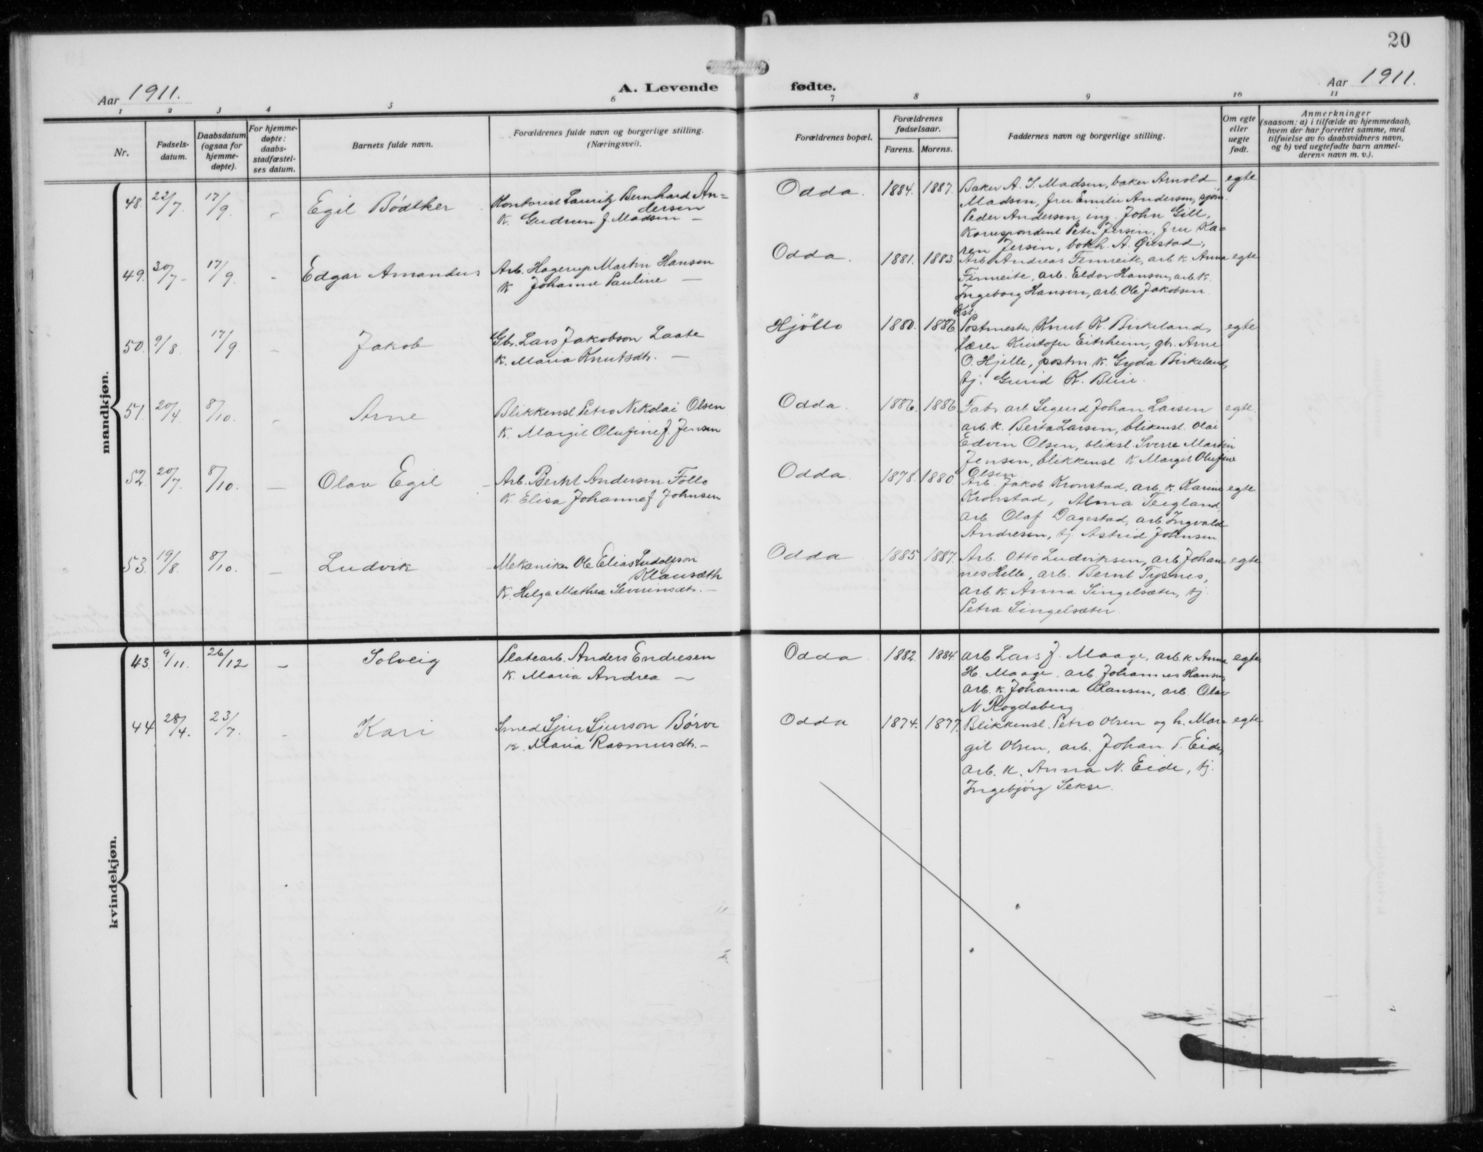 20
Aar 1911.
A. Levende fødte.
Aar 1911.
1 2 3 4 5 6 7 8 9 10 11
Nr.
Fødsels-
datum.
Daabsdatum
(ogsaa for
hjemme-
døpte).
For hjemme-
døpte:
daabs-
stadfæstel-
ses datum.
Barnets fulde navn.
Forældrenes fulde navn og borgerlige stilling.
(Næringsvei).
Forældrenes bopæl.
Forældrenes
fødselsaar.
Farens. Morens.
Faddernes navn og borgerlige stilling.
Om egte
eller
uegte
født.
Anmerkninger
(saasom: a) i tilfælde av hjemmedaab,
hvem der har forrettet samme, med
tilføielse av to daabsvidners navn,
og b) ved uegtefødte barn anmel-
derens navn m. v.).
mandkjøn.
48. 22/7. 17/9. - Egil Bödtker
Kontorist Lauritz Bernhard An-
dersen
K. Gudrun f. Madsen -
Odda. 1884. 1887.
Baker A. J. Madsen, baker Arnold
Madsen, fru Emilie Andersen,
Peder Andersen, ing. John Gill,
Korrespondent Peter Jersin, fru Ka-
ren Jersin, bokh. A. Övstad.
egte
49. 20/7. 17/9. - Edgar Amandus
Arb. Hagerup Martin Hansen
K. Johanne Pauline -
Odda. 1881. 1883
Arb. Andreas Tennveik, arb. k. Anna
arb. Eldor Hansen, arb. k.
Ingeborg Hansen, arb. Ole Jakobsen
egte
50. 9/8. 17/9 - Jakob
Gbr. Lars Jakobson Laate
K. Maria Knutsdtr. -
Hjöllo 1880. 1886
Postmester Knut K. Birkeland,
lærer Kristofer Eitrheim, gbr. Arne
O. Hjelle, postm. k. Gyda Birkeland,
tj. Gunid K.
egte
51 20/4 8/10. - Arne
Blikkensl. Petro Nikolai Olsen
K. Margit Olufine f. Jensen
Odda. 1886 1886
Fabr. arb. Sigurd Johan Larsen
arb. k. Berta Larsen, blikensl. Olai
Edvin Olsen, bliksl. Sverre Martin
Jensen, blikkensl. k. Margit Olufine
Olsen
egte.
52 20/7. 8/10. - Olav Egil
Arb. Berht Andersen Follo
K. Elisa Johanne f. Johnsen
Odda. 1878. 1880
Arb. Jakob Kronstad, arb. k. Karine
Kronstad, Alma Teigland,
arb. Olaf Dagestad, arb. Ingvald
Andresen, tj. Astrid Johnsen
egte
53. 19/8. 8/10. - Ludvik
Mekaniker Ole Elias Ludolfson
Klausæth
K. Helga Mathea Severinsdtr. -
Odda 1885 1887.
Arb. Otto Ludviksen, arb. Johan-
nes Helle, arb. Bernt Tysnes,
arb. k. Anna Singelsæter, tj.
Petra Singelsæter
egte
kvindekjøn.
43. 9/11. 26/12 - Solveig
Platearb. Anders Endresen
K. Maria Andrea -
Odda 1882 1884
arb. Lars J. Maage, arb. k. Anna
H. Maage, arb. Johannes Hansen,
arb. k. Johanna Hansen, arb. Olav
N. Rogdaberg
egte
44 28/4. 23/7. - Kari
Smed Sjur Sjurson Børve
K. Maria Rasmusdtr. -
Odda 1874. 1877.
Blikkensl. Petro Olsen og h. Mar-
git Olsen, arb. Johan T. Eide,
arb. K. Anna N. Eide, tj.
Ingebjörg Sekse.
egte